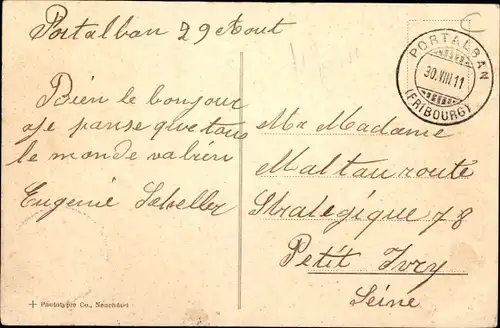 Portalban 29 Aout
Bien le bonjour
je panse que tous
le monde va bien
Eugenie
PORTALBAN
30.VIII 11
(FRIBOURG)
Mr Madame
Maltau route
Strategique 78
Petit Ivry
Seine
Phototypie Co., Neuchâtel